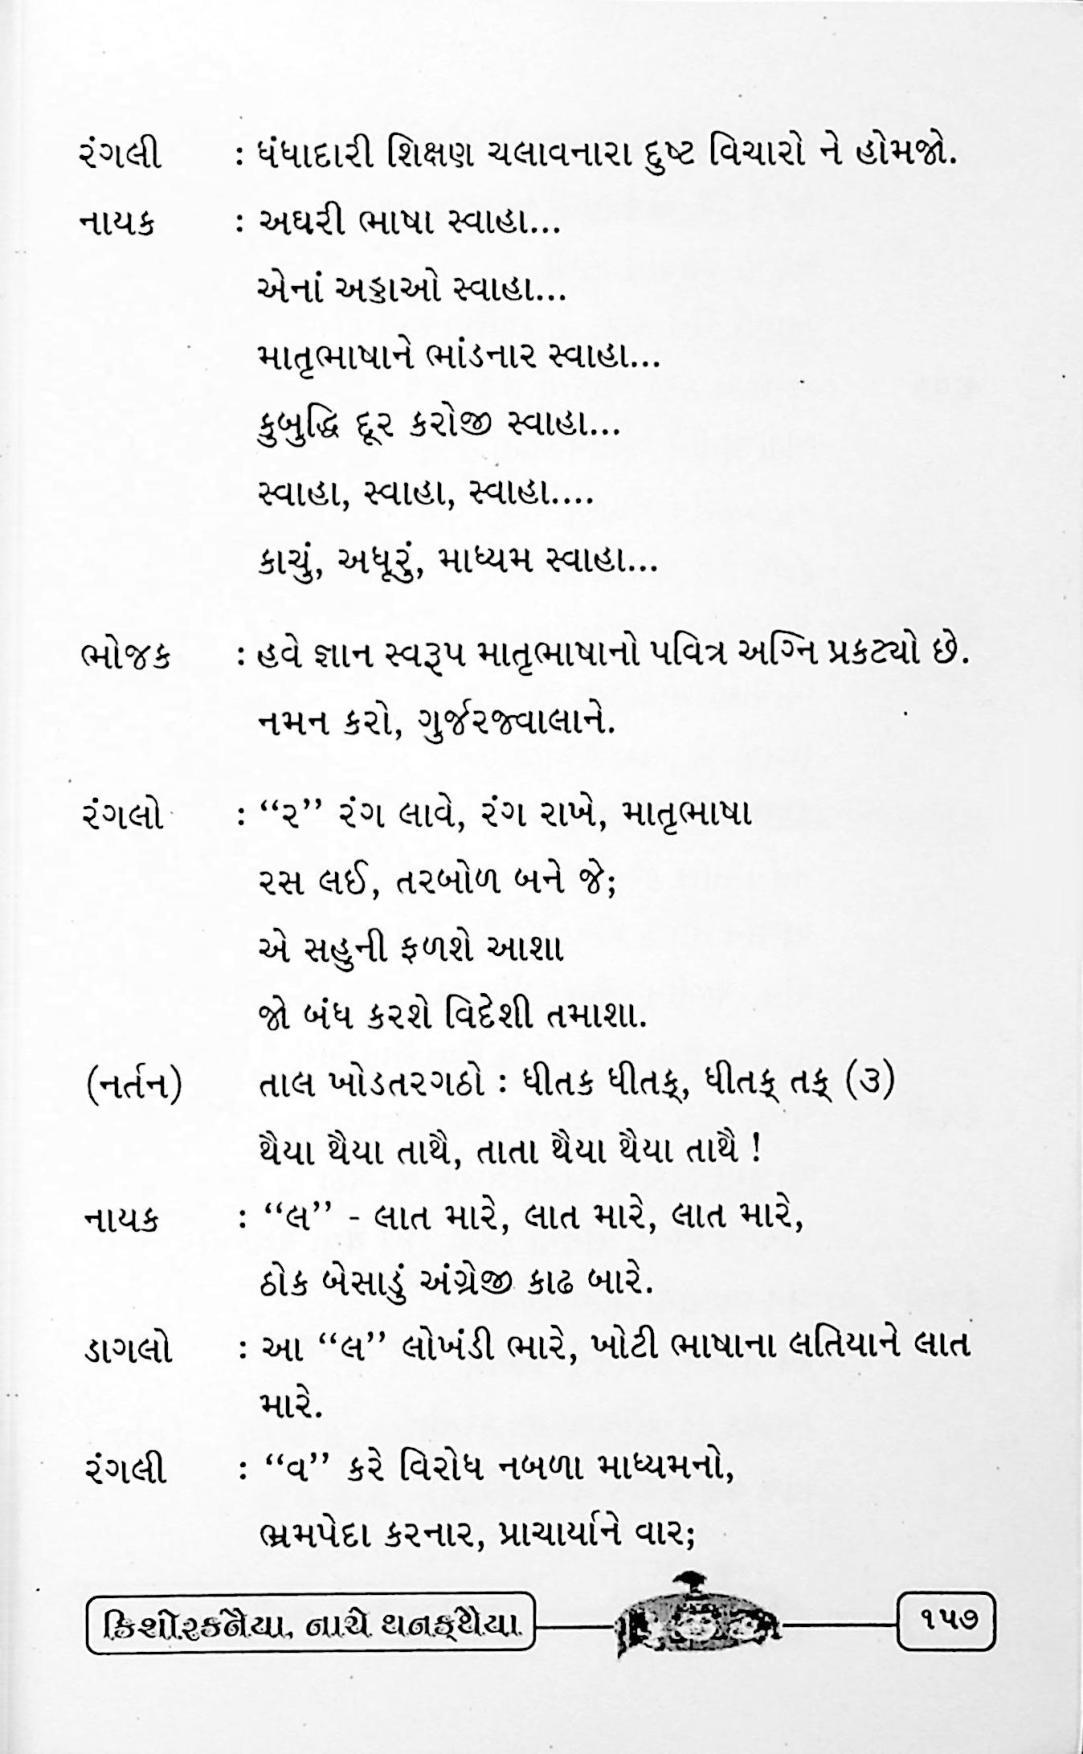 રંગલી : ધંધાદારી શિક્ષણ ચલાવનારા દુષ્ટ વિચારો ને હોમજો.
નાયક : અઘરી ભાષા સ્વાહા...
એનાં અડ્ડાઓ સ્વાહા...
માતૃભાષાને ભાંડનાર સ્વાહા...
કુબુદ્ધિ દૂર કરોજી સ્વાહા...
સ્વાહા, સ્વાહા, સ્વાહા....
કાચું, અધૂરું, માધ્યમ સ્વાહા...
ભોજક : હવે જ્ઞાન સ્વરૂપ માતૃભાષાનો પવિત્ર અગ્નિ પ્રકટ્યો છે.
નમન કરો, ગુર્જરજ્વાલાને.
રંગલો : “ર” રંગ લાવે, રંગ રાખે, માતૃભાષા
રસ લઈ, તરબોળ બને જે;
એ સહુની ફળશે આશા
જો બંધ કરશે વિદેશી તમાશા.
(નર્તન) તાલ ખોડતરગઠો : ધીતક ધીતક્, ધીતક્ તક્ (૩)
થૈયા થૈયા તાથૈ, તાતા થૈયા થૈયા તાથૈ !
નાયક : “લ” - લાત મારે, લાત મારે, લાત મારે,
ઠોક બેસાડું અંગ્રેજી કાઢ બારે.
ડાગલો : આ “લ” લોખંડી ભારે, ખોટી ભાષાના લતિયાને લાત
મારે.
રંગલી : “વ” કરે વિરોધ નબળા માધ્યમનો,
ભ્રમપેદા કરનાર, પ્રાચાર્યાને વાર;
કિશોરકનૈયા, નાચે થનક્થૈયા ૧૫૭